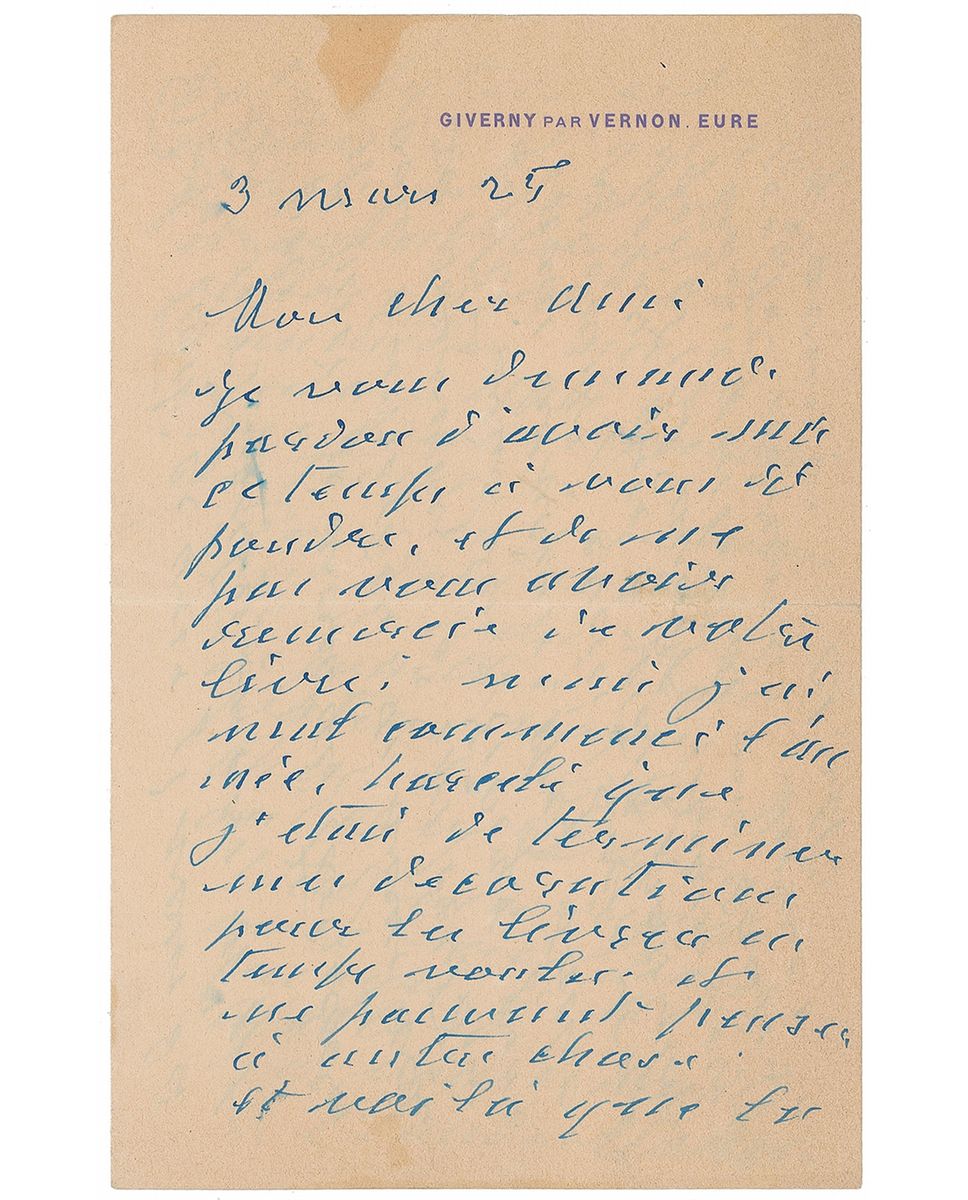 GIVERNY PAR VERNON. EURE
3 mars 25
Mon cher Ami
Je vous demande
pardon d'avoir mis
ce temps à vous ré
pondre, et de ne
pas vous avoir
remercié de votre
livre; mais j'ai
mal commencé l'an
née, harcelé que
j'étais de terminer
mes decorations
pour les livrer en
temps voulu. et
ne pouvant penser
à autre chose.
et voilà que la